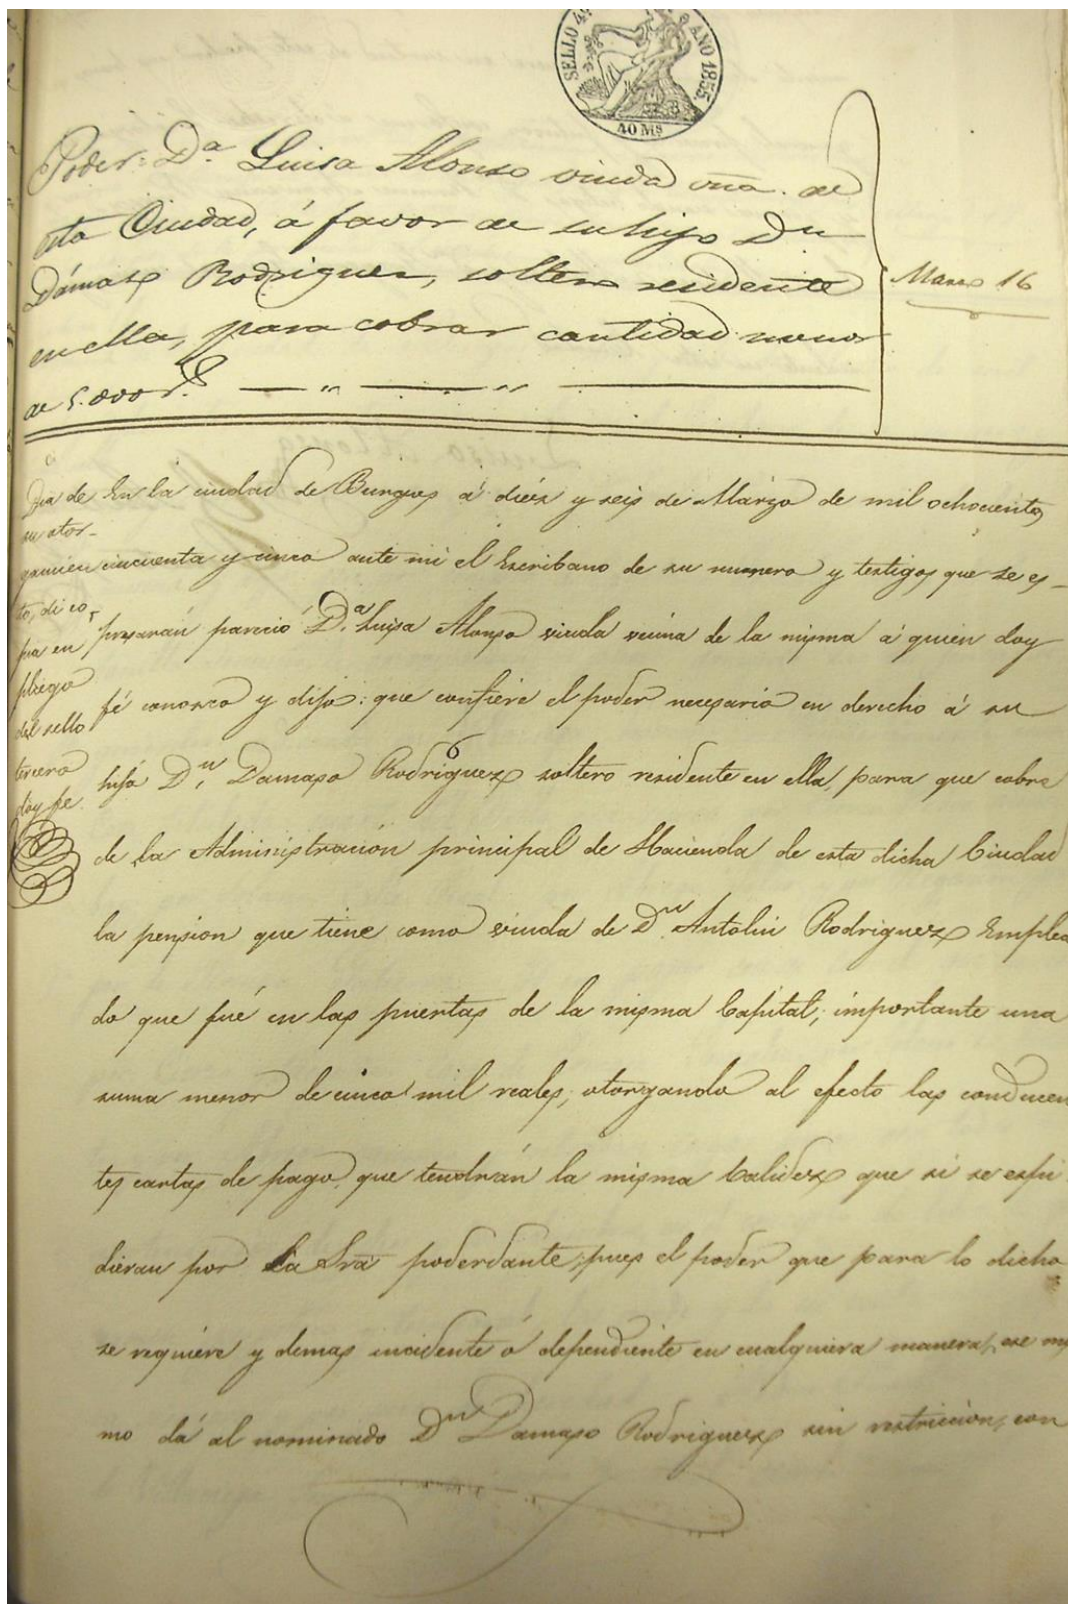 SELLO 4º AÑO 1855.
40 Ms
Poder: Dª Luisa Alonso viuda vna. de
esta Ciudad, á favor de su hijo Dn
Dámaso Rodriguez, soltero residente
en ella, para cobrar cantidad menor
de 5.000 rs.
Marzo 16
Dia de
su otor-
gamien
to, di co,
pia en
pliego
del sello
tercero
doy fe.
En la ciudad de Burgos á diéz y seis de Marzo de mil ochocientos
cincuenta y cinco ante mi el Escribano de su numero y testigos que se es-
presarán pareció Dª Luisa Alonso viuda vecina de la misma á quien doy
fé conozco y dijo: que confiere el poder necesario en derecho á su
hijo Dn. Damaso Rodriguez soltero residente en ella, para que cobre
de la Administración principal de Hacienda de esta dicha Ciudad
la pension que tiene como viuda de Dn. Antolin Rodriguez Emplea
do que fué en las puertas de la misma Capital, importante una
suma menor de cinco mil reales, otorgando al efecto las conducen
tes cartas de pago, que tendrán la misma balidez que si se espi
dieran por la Sra poderdante, pues el poder que para lo dicho
se requiere y demas incidente ó dependiente en cualquiera manera, ese mis
mo dá al nominado Dn Damaso Rodriguez sin restriccion, con